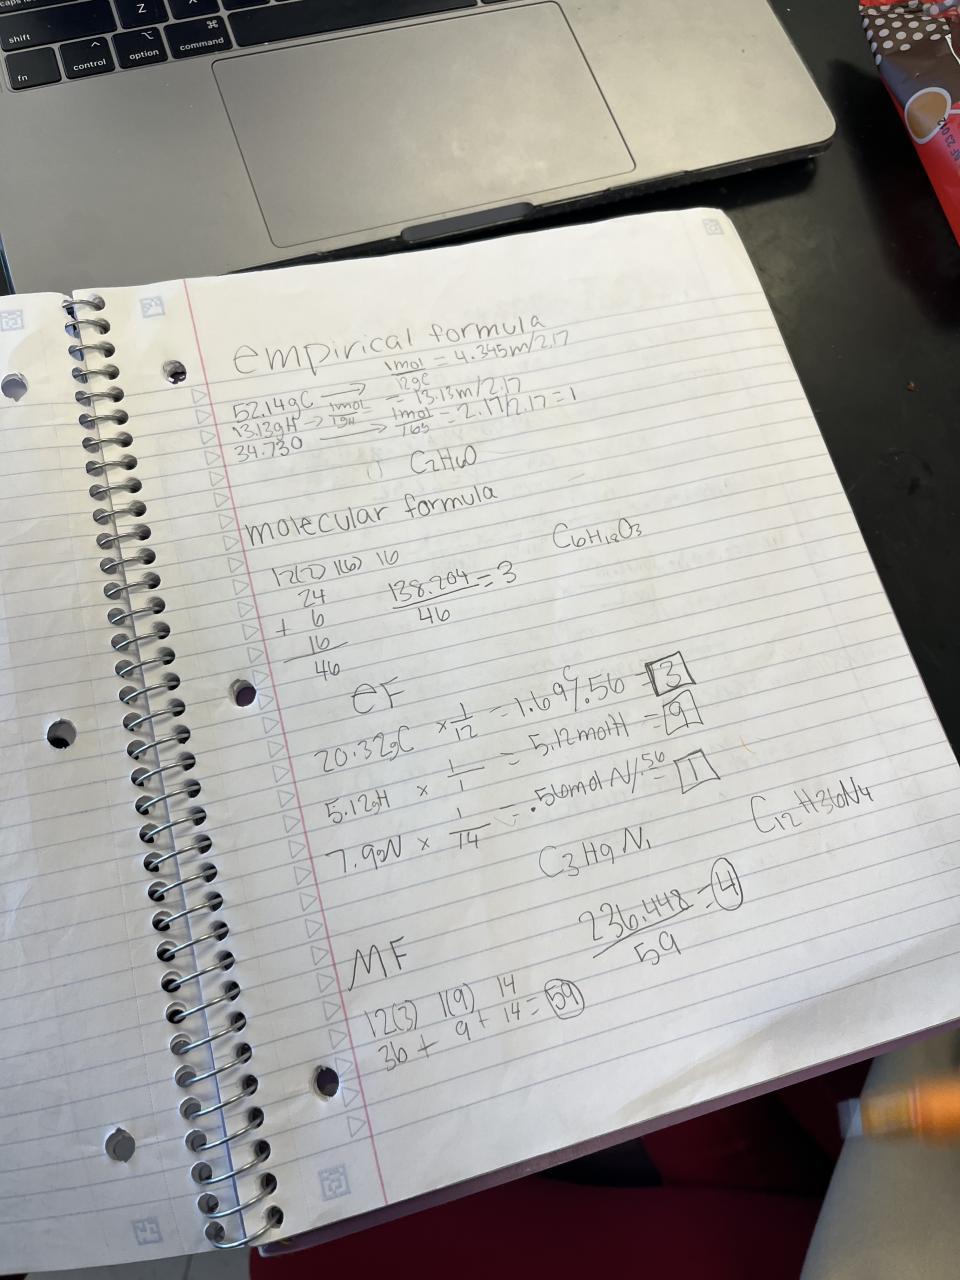 Z
X
shift
control
option
command
fn
NF 23 012
empirical formula
52.14gC → 1mol/12gC = 4.345m/2.17
13.13gH → 1mol/1gH = 13.13m/2.17
34.73O → 1mol/16g = 2.17/2.17 = 1
C2H6O
molecular formula
12(2) 1(6) 16
24
+ 6
16
46
138.204/46 = 3
C6H18O3
eF
20.32gC × 1/12 = 1.69/.56 = 3
5.12gH × 1/1 = 5.12molH = 9
7.9gN × 1/14 = .56molN/.56 = 1
C3H9N1
C12H36N4
MF
236.448/59 = 4
12(3) 1(9) 14
36 + 9 + 14 = 59